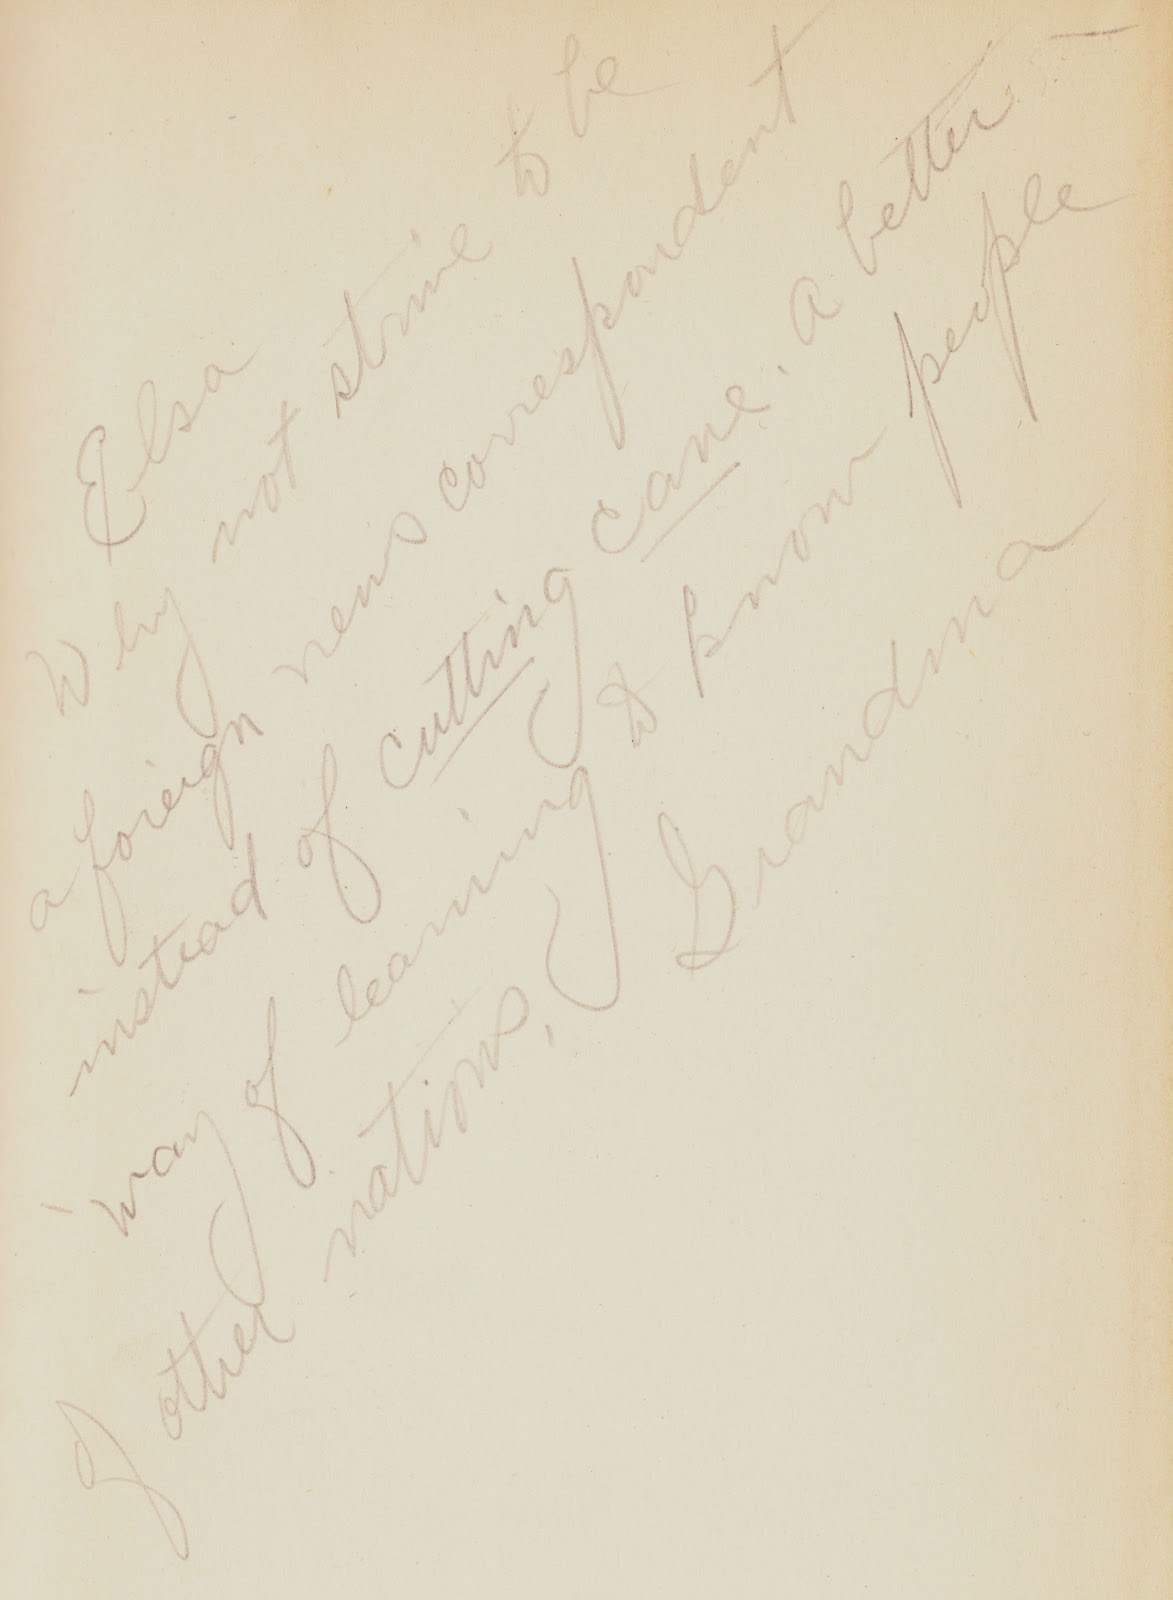 Elsa
Why not strive to be
a foreign news correspondent
instead of cutting cane. A better
way of learning to know people
of other nations,
Grandma